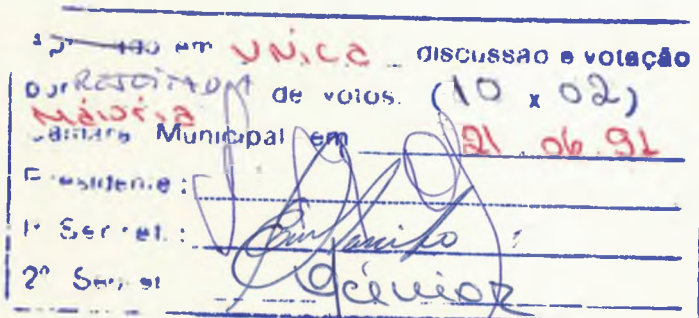 em UNiCa discussão e votação
por REJEITADA de votos. (10 x 02)
MAiORiA
Câmara Municipal em 21.06.91
Presidente:
1º Secret.:
2º Secret